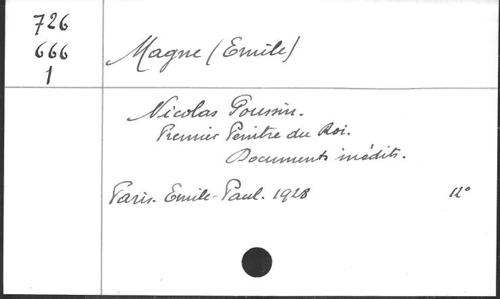 726
666
1
Magne (Emile)
Nicolas Poussin.
Premier Peintre du Roi.
Documents inédits.
Paris. Emile-Paul. 1928 12°